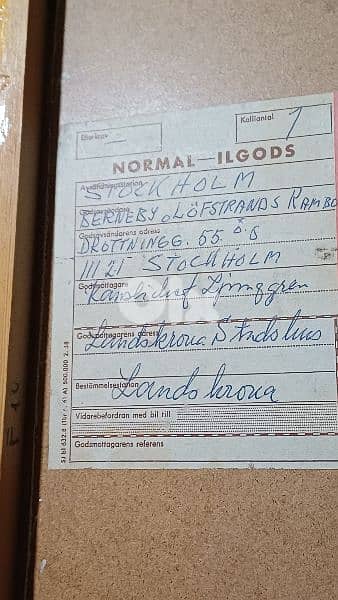 Efterkrav
Kolliantal
1
NORMAL—ILGODS
Avsändningsstation
STOCKHOLM
Godsavsändare
BERNEBY & LÖFSTRANDS RAMBO
Godsavsändarens adress
DROTTNINGG. 55 ö.g
111 21 STOCKHOLM
Godsmottagare
Kanslichef Ljunggren
Godsmottagarens adress
Landskrona Stadshus
Bestämmelsestation
Landskrona
Vidarebefordran med bil till
Godsmottagarens referens
SJ bl 632.8 (förr. 41 A) 500.000 2. 58